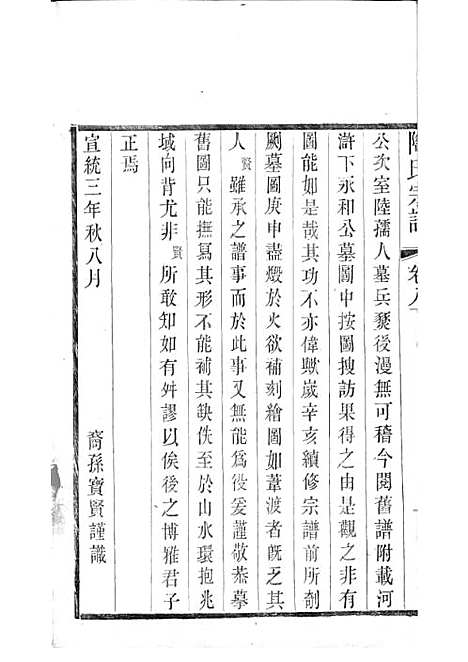 陶氏宗譜 卷八
公次室陸孺人墓兵燹後漫無可稽今閱舊譜附載河
滸下永和公墓圖中按圖搜訪果得之是觀之非有
圖能如是哉其功不亦偉歟歲辛亥續修宗譜前所刻
闕墓圖庚申盡燬於火欲補刻繪圖如葦渡者旣乏其
人賢雖承之譜事而於此事又無能爲役爰謹敬恭摹
舊圖只能撫寫其形不能補其缺佚至於山水環抱兆
域向背尤非賢所敢知如有舛謬以俟後之博雅君子
正焉
宣統三年秋八月
裔孫寶賢謹識